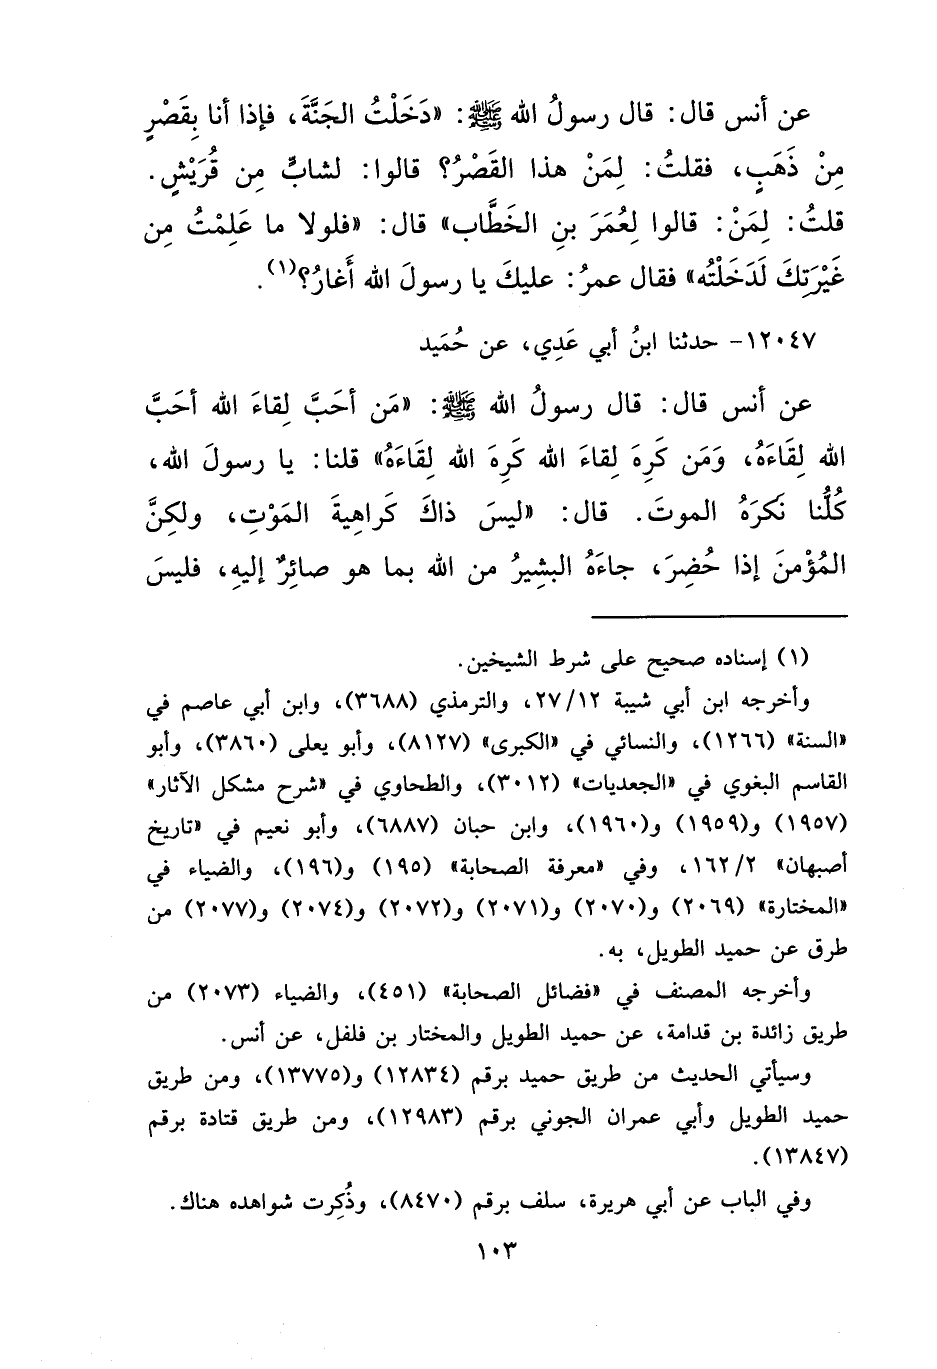 عن أنس قال: قال رسولُ الله ﷺ: «دَخَلْتُ الجَنَّةَ، فإذا أنا بِقَصْرٍ
مِنْ ذَهَبٍ، فقلتُ: لِمَنْ هذا القَصْرُ؟ قالوا: لشابٍّ مِن قُرَيْشٍ.
قلتُ: لِمَنْ: قالوا لِعُمَرَ بنِ الخَطَّاب» قال: «فلولا ما عَلِمْتُ مِن
غَيْرَتِكَ لَدَخَلْتُه» فقال عمرُ: عليكَ يا رسولَ الله أَغارُ؟(١).
١٢٠٤٧- حدثنا ابنُ أبي عَدِي، عن حُمَيد
عن أنس قال: قال رسولُ الله ﷺ: «مَن أحَبَّ لِقاءَ الله أحَبَّ
الله لِقَاءَهُ، وَمَن كَرِهَ لِقاءَ الله كَرِهَ الله لِقَاءَهُ» قلنا: يا رسولَ الله،
كُلُّنا نَكرَهُ الموتَ. قال: «ليسَ ذاكَ كَراهِيةَ المَوْتِ، ولكِنَّ
المُؤْمنَ إذا حُضِرَ، جاءَهُ البشِيرُ من الله بما هو صائِرٌ إليهِ، فليسَ
(١) إسناده صحيح على شرط الشيخين.
وأخرجه ابن أبي شيبة ٢٧/١٢، والترمذي (٣٦٨٨)، وابن أبي عاصم في
«السنة» (١٢٦٦)، والنسائي في «الكبرى» (٨١٢٧)، وأبو يعلى (٣٨٦٠)، وأبو
القاسم البغوي في «الجعديات» (٣٠١٢)، والطحاوي في «شرح مشكل الآثار»
(١٩٥٧) و(١٩٥٩) و(١٩٦٠)، وابن حبان (٦٨٨٧)، وأبو نعيم في «تاريخ
أصبهان» ١٦٢/٢، وفي «معرفة الصحابة» (١٩٥) و(١٩٦)، والضياء في
«المختارة» (٢٠٦٩) و(٢٠٧٠) و(٢٠٧١) و(٢٠٧٢) و(٢٠٧٤) و(٢٠٧٧) من
طرق عن حميد الطويل، به.
وأخرجه المصنف في «فضائل الصحابة» (٤٥١)، والضياء (٢٠٧٣) من
طريق زائدة بن قدامة، عن حميد الطويل والمختار بن فلفل، عن أنس.
وسيأتي الحديث من طريق حميد برقم (١٢٨٣٤) و(١٣٧٧٥)، ومن طريق
حميد الطويل وأبي عمران الجوني برقم (١٢٩٨٣)، ومن طريق قتادة برقم
(١٣٨٤٧).
وفي الباب عن أبي هريرة، سلف برقم (٨٤٧٠)، وذُكِرت شواهده هناك.
١٠٣